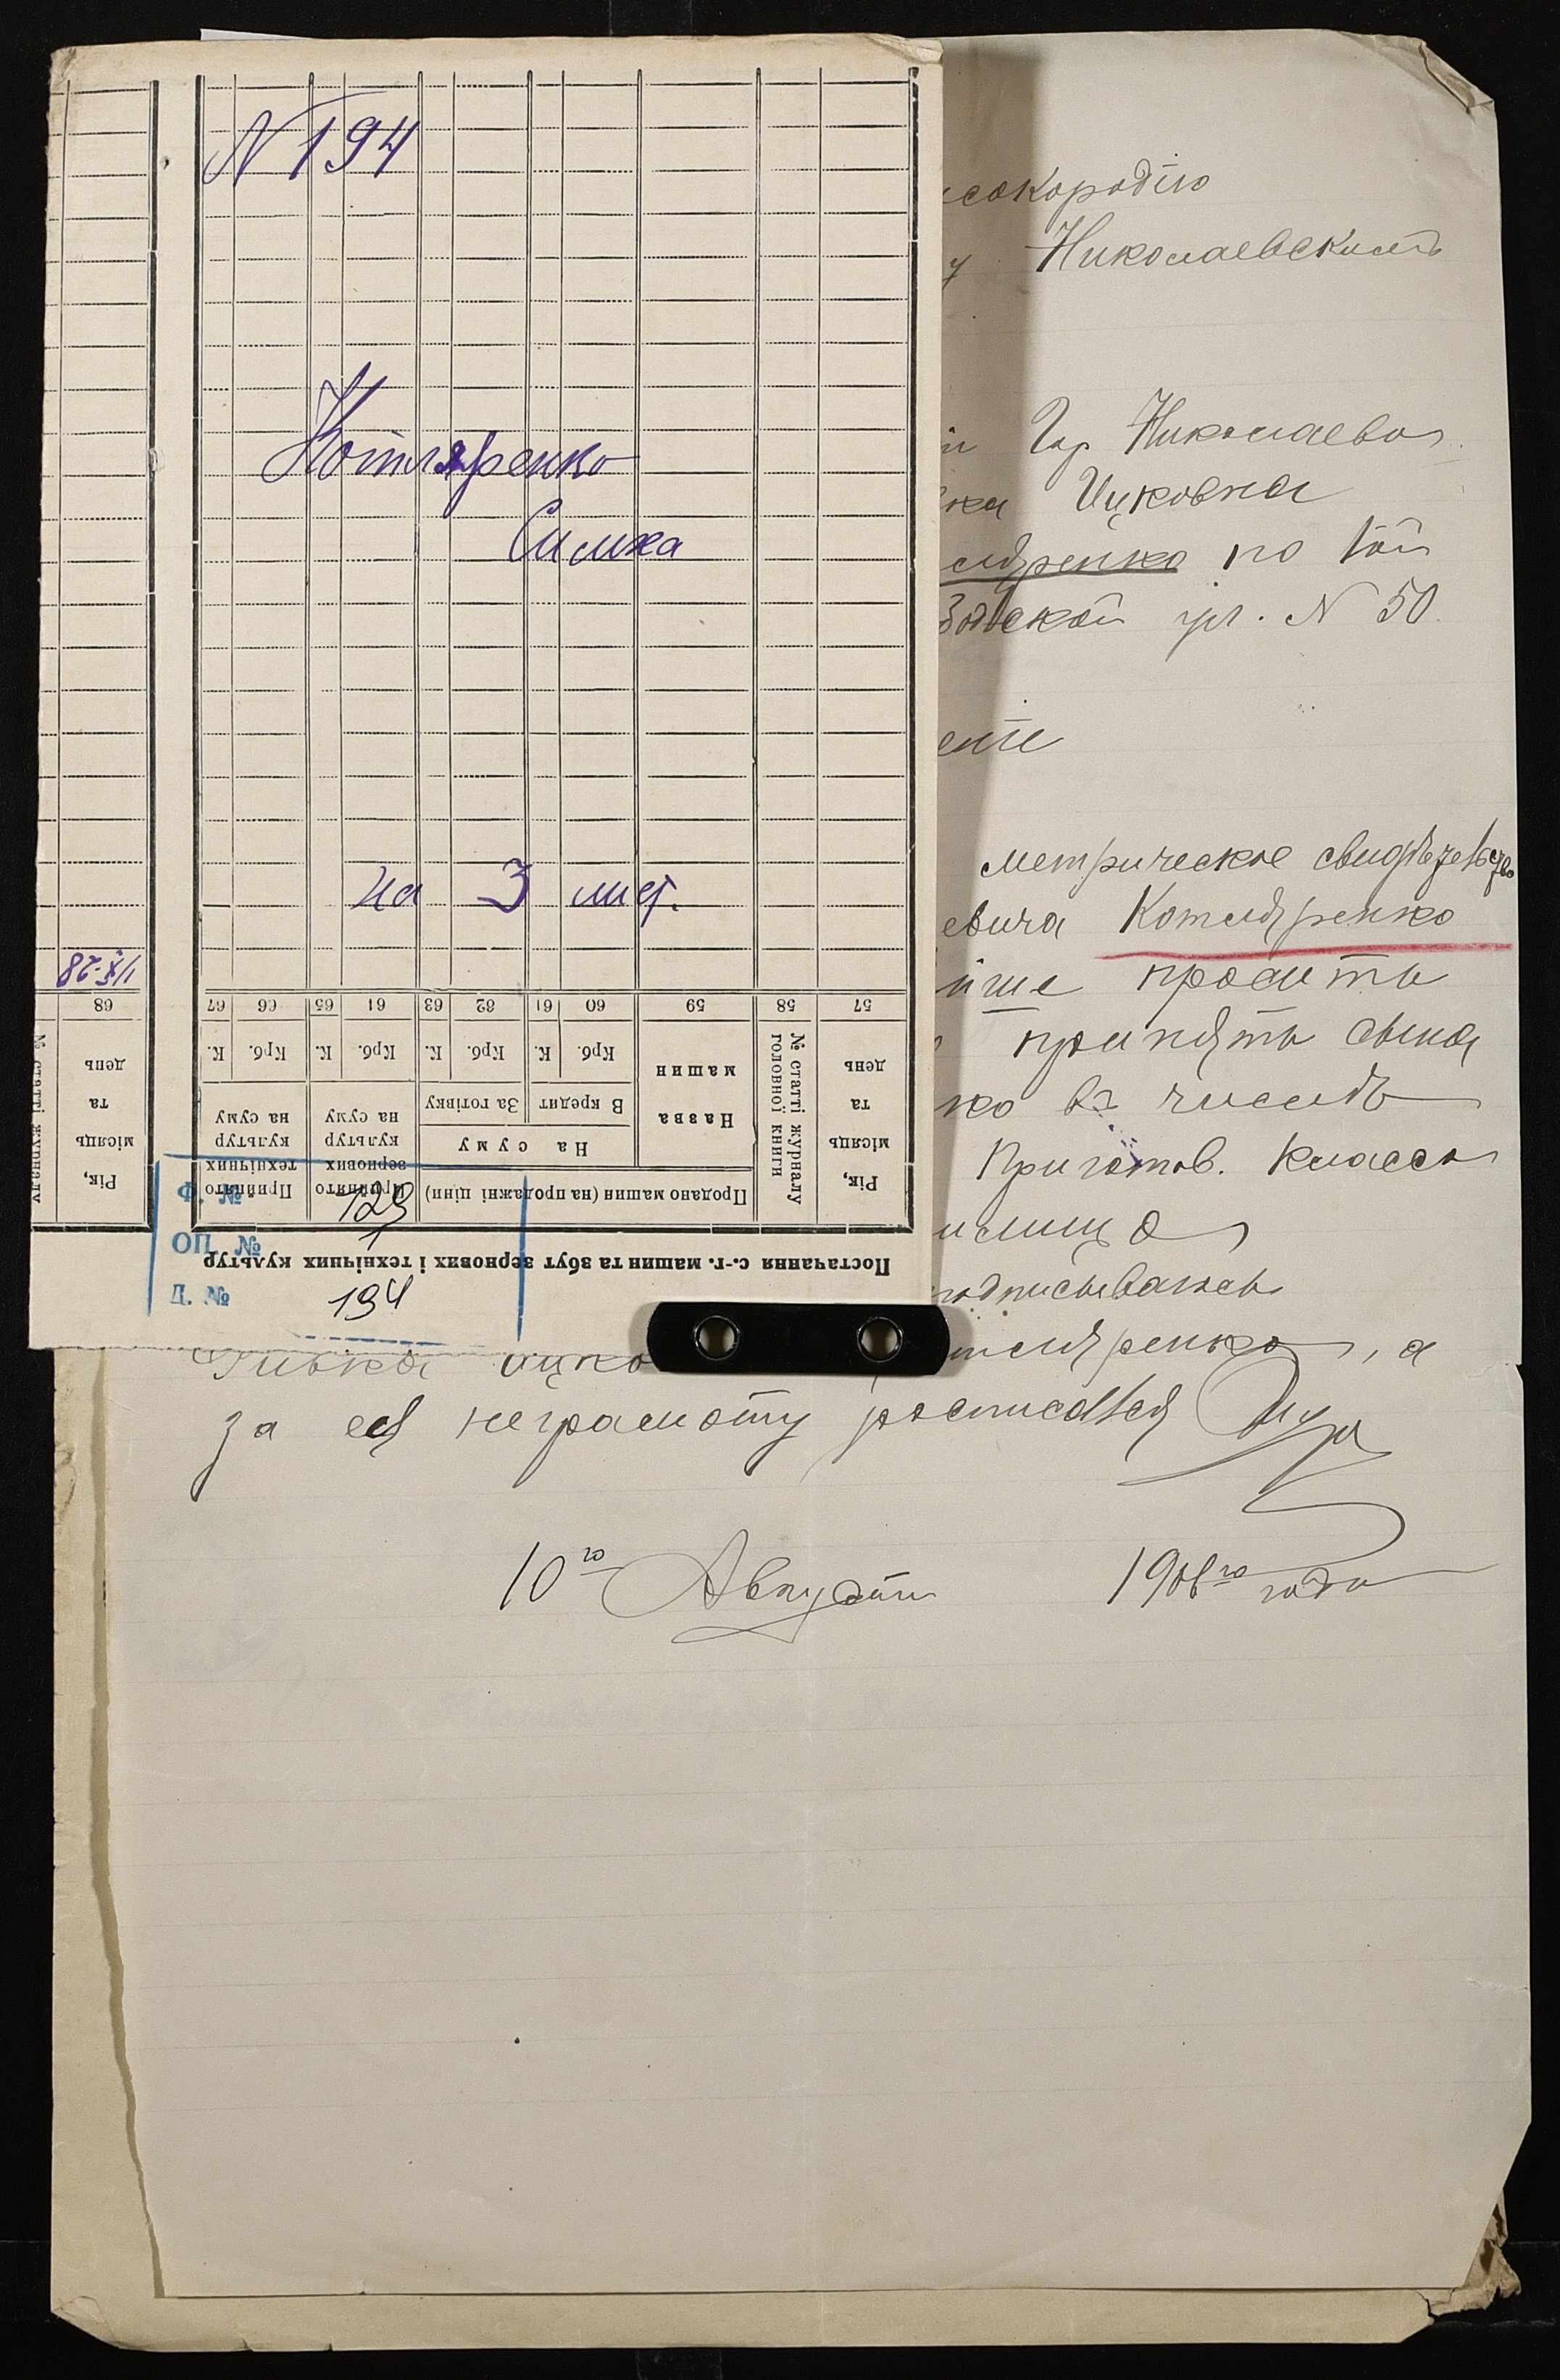 N 194
Котляренко
Симха
на 3 лист.
1/X-28
68
67
66
65
61
63
62
61
60
59
58
57
Рік, місяць та день
№ статті журналу
К.
Крб.
К.
Крб.
К.
Крб.
К.
Крб.
Назва машин
№ статті журналу головної книги
Рік, місяць та день
Прийнято технічних культур на суму
Прийнято зернових культур на суму
За готівку
В кредит
На суму
Продано машин (на продажні ціни)
Постачання с.-г. машин та збут зернових і технічних культур
№ Ф
129
№ ПО
1
№ Д.
194
сокородію
у Николаевскимъ
й Гор Николаева
ка Ицковна
ляренко по
ской ул. N 50
ение
метрическое свидѣтельство
евича Котляренко
йше просить
принять сына
ко въ числѣ
Приготов. класса
илища
подписываюсь
Ривка ицко
тляренко, а
за ея неграмоту росписался
10го Августа 1908го года